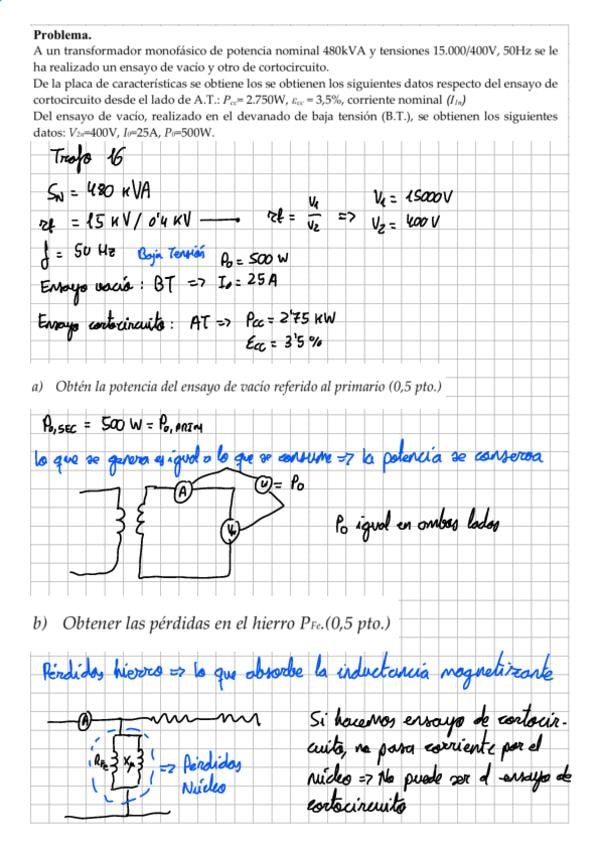 Problema.
A un transformador monofásico de potencia nominal 480kVA y tensiones 15.000/400V, 50Hz se le
ha realizado un ensayo de vacío y otro de cortocircuito.
De la placa de características se obtiene los se obtienen los siguientes datos respecto del ensayo de
cortocircuito desde el lado de A.T.: Pcc= 2.750W, εcc = 3,5%, corriente nominal (I1n)
Del ensayo de vacío, realizado en el devanado de baja tensión (B.T.), se obtienen los siguientes
datos: V2n=400V, I0=25A, P0=500W.
Trafo 16
SN = 480 KVA
rt = 15 KV / 0'4 KV —— rt = V1/V2 => V1 = 15000V
V2 = 400 V
f = 50 Hz Baja Tensión P0 = 500 W
Ensayo vacío : BT => I0 = 25 A
Ensayo cortocircuito : AT => Pcc = 2'75 KW
Ecc = 3'5 %
a) Obtén la potencia del ensayo de vacío referido al primario (0,5 pto.)
P0,SEC = 500 W = P0,PRIM
lo que se genera es igual a lo que se consume => la potencia se conserva
A
W = P0
V
P0 igual en ambos lados
b) Obtener las pérdidas en el hierro PFe.(0,5 pto.)
Pérdidas hierro => lo que absorbe la inductancia magnetizante
A
RFe Xμ => Pérdidas
Núcleo
Si hacemos ensayo de cortocir-
cuito, no pasa corriente por el
núcleo => No puede ser el ensayo de
cortocircuito